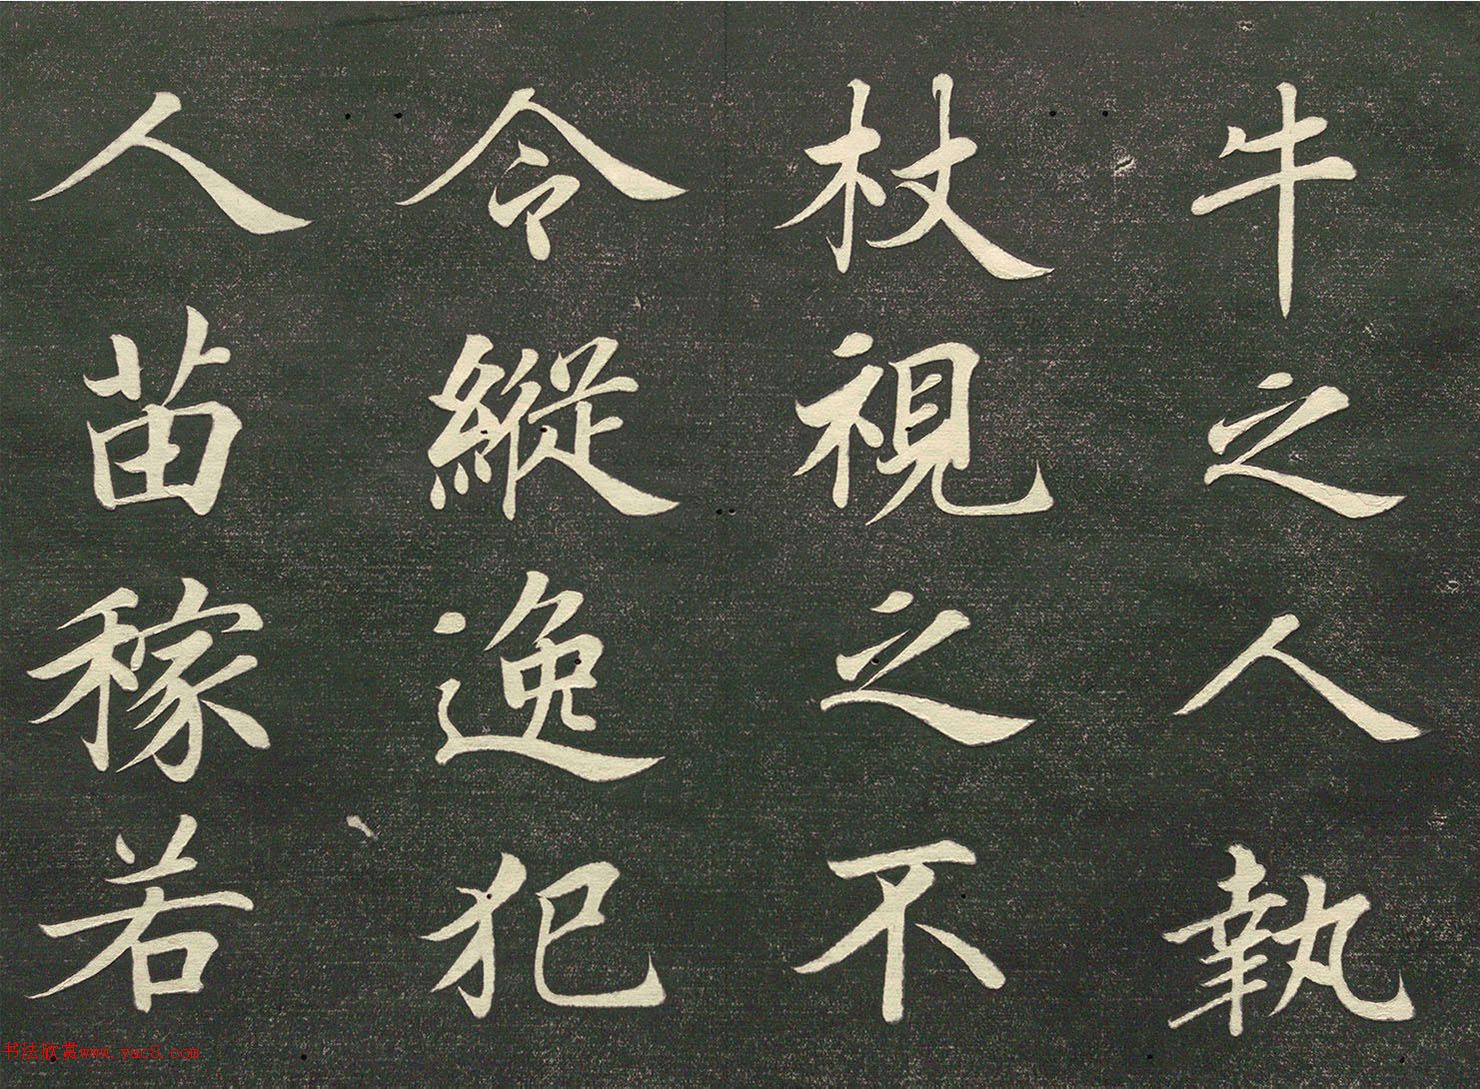 牛之人執
杖視之不
令縱逸犯
人苗稼若
书法欣赏www.yac8.com